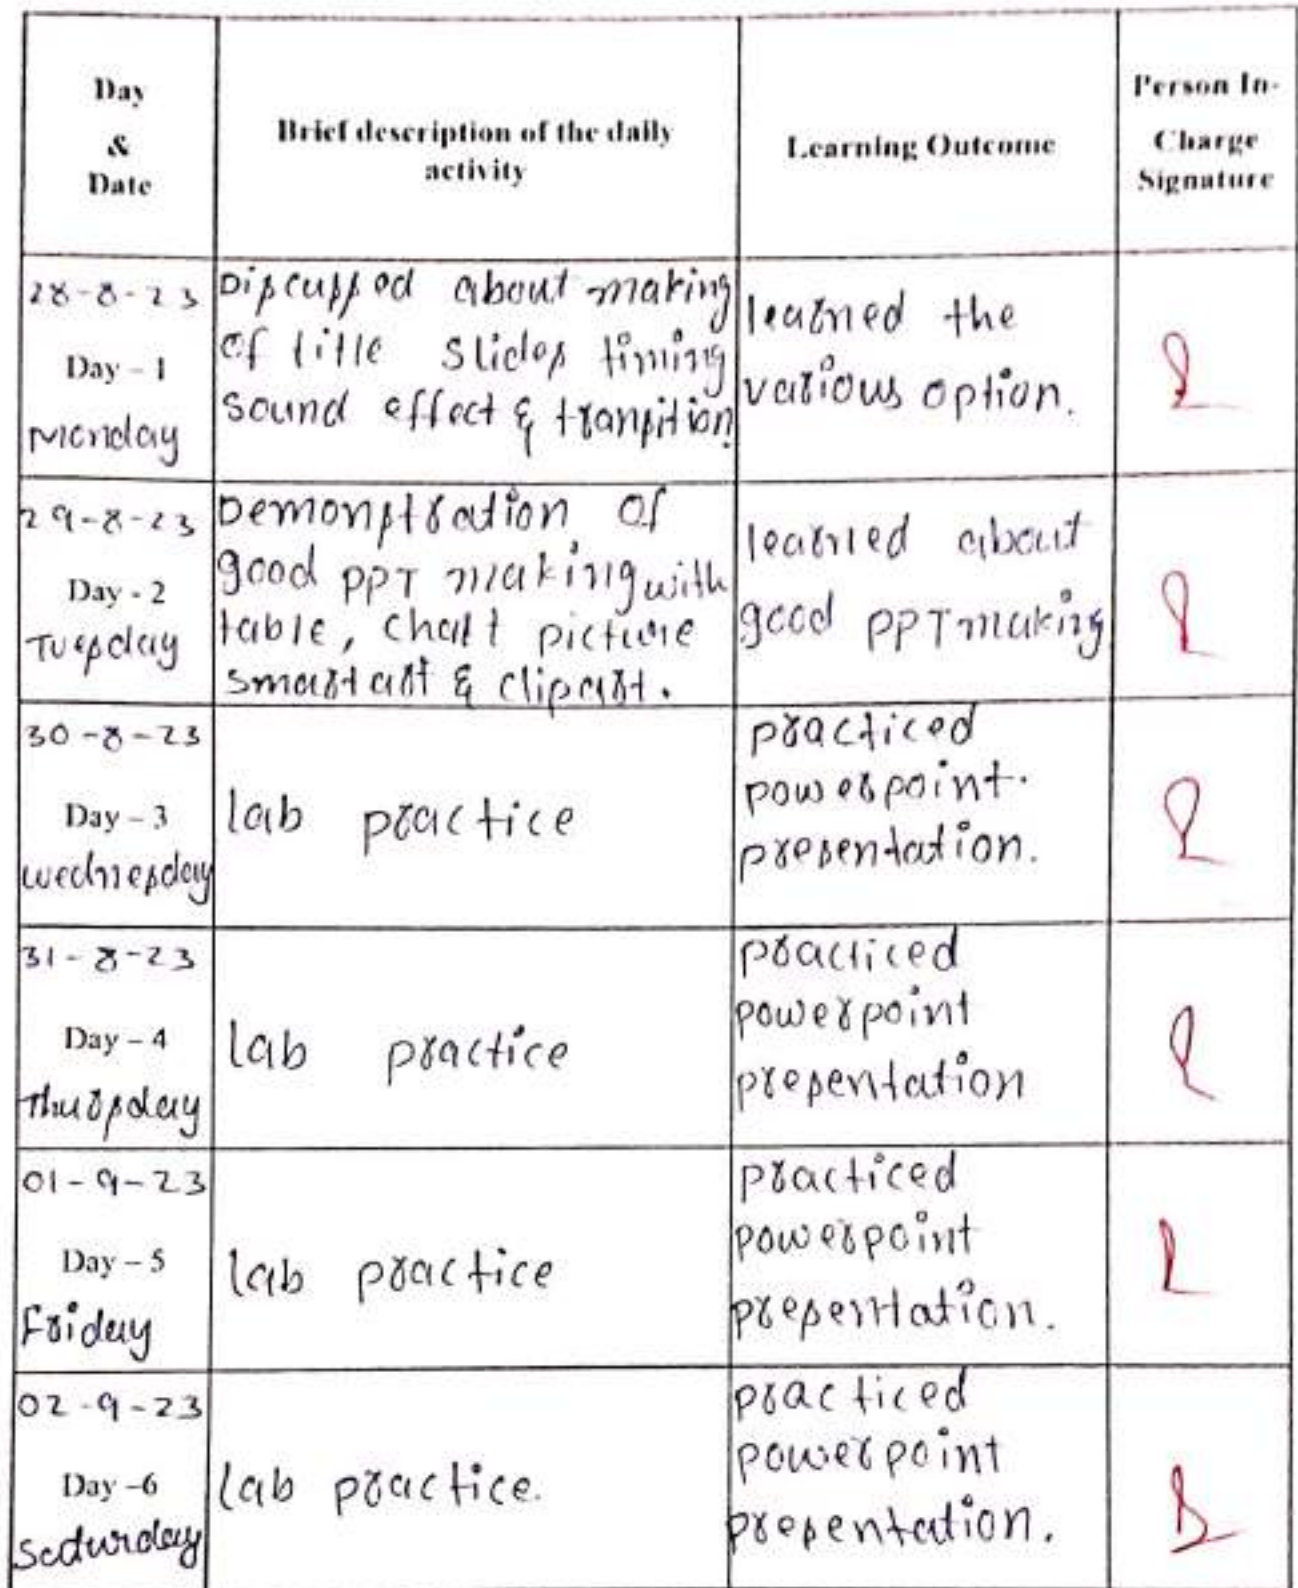 Day
&
Date
Brief description of the daily
activity
Learning Outcome
Person In-
Charge
Signature
28-8-23
Day - 1
Monday
Discussed about making
of title slides timing
sound effect & transition
learned the
various option.
29-8-23
Day - 2
Tuesday
Demonstration of
good ppT making with
table, chart picture
smart art & clipart.
learned about
good ppT making
30-8-23
Day - 3
wednesday
lab practice
practiced
powerpoint.
presentation.
31-8-23
Day - 4
Thursday
lab practice
practiced
powerpoint
presentation
01-9-23
Day - 5
Friday
lab practice
practiced
powerpoint
presentation.
02-9-23
Day -6
Saturday
lab practice.
practiced
powerpoint
presentation.